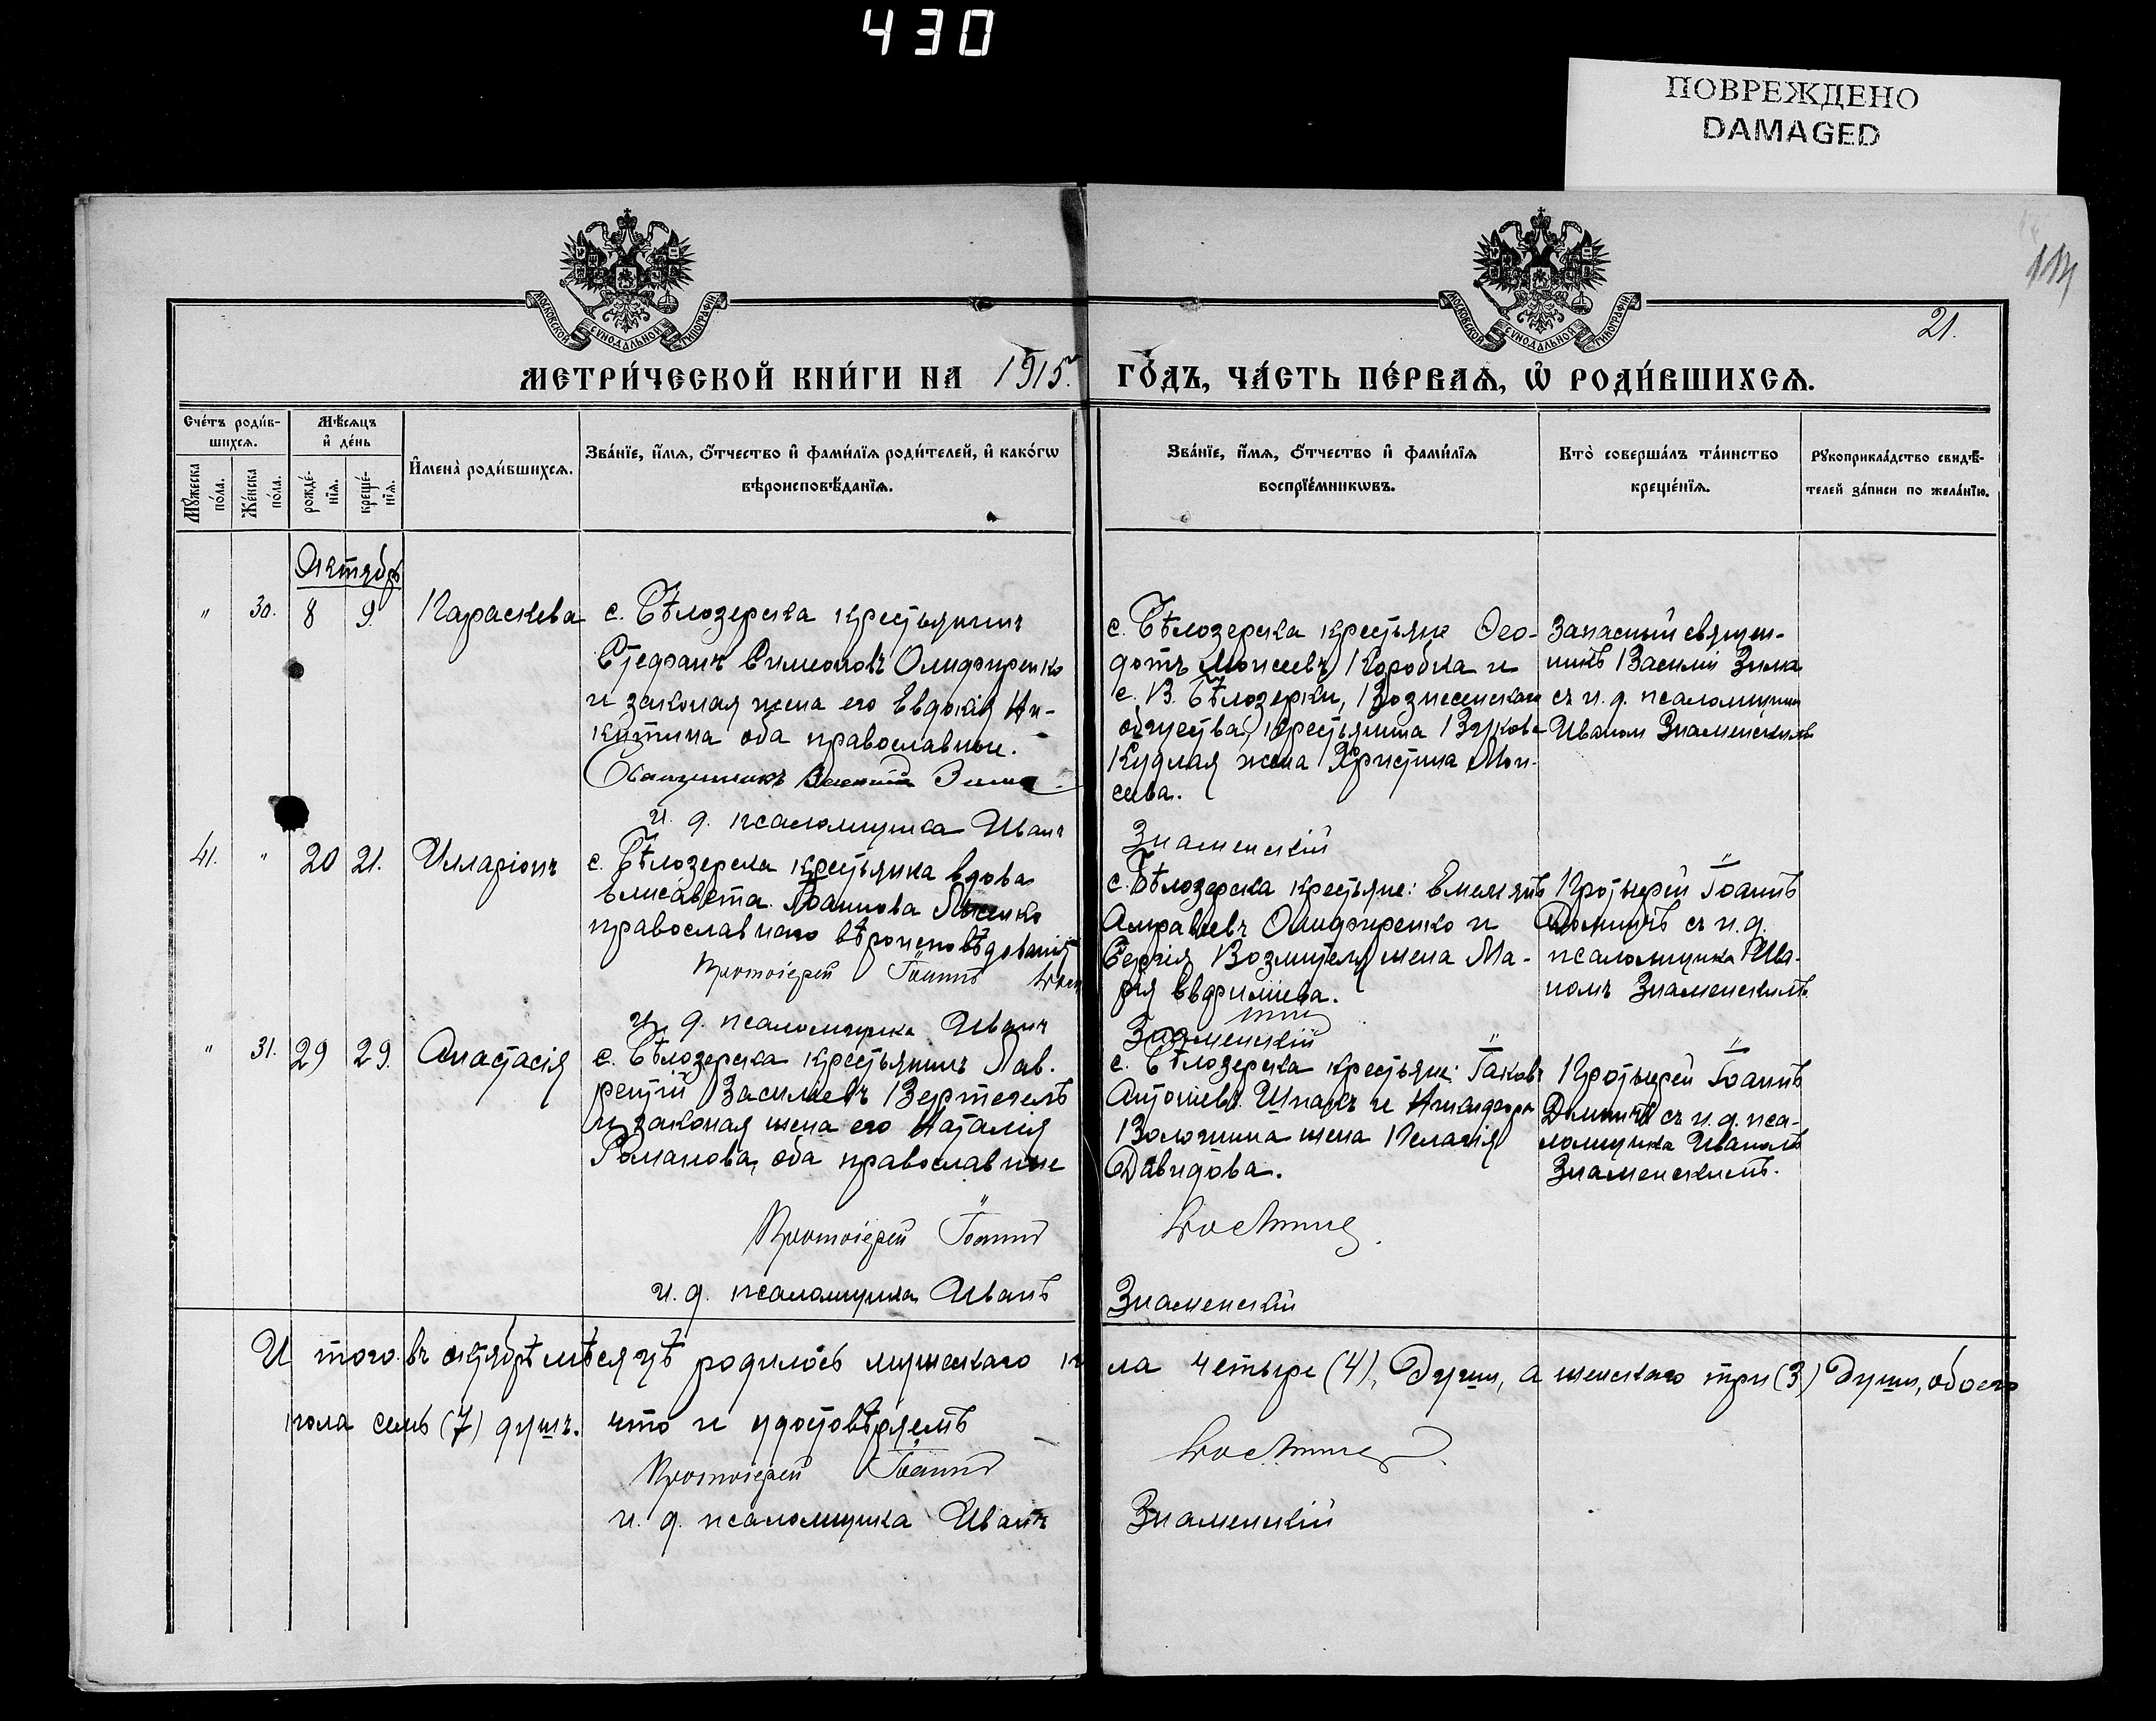 430
ПОВРЕЖДЕНО
DAMAGED
21.
МОСКОВСКОЙ СУНОДАЛЬНОЙ ТИПОГРАФІИ
МОСКОВСКОЙ СУНОДАЛЬНОЙ ТИПОГРАФІИ
МЕТРИ́ЧЕСКОЙ КНИ́ГИ НА 1915 г. ГО́ДЪ, ЧА́СТЬ ПЕ́РВАѦ, Ѡ҆ РОДИ́ВШИХСѦ.
Сче́тъ роди́в-
шихсѧ.
Мѣ́сѧцъ
и҆ де́нь
Мꙋ́жеска
по́ла.
Же́нска
по́ла.
рожде́-
нїѧ.
креще́-
нїѧ.
И҆мена̀ роди́вшихсѧ.
Зва́нїе, и҆́мѧ, ѻ҆́тчество и҆ фами́лїѧ роди́телей, и҆ како́гѡ
вѣроисповѣ́данїѧ.
Зва́нїе, и҆́мѧ, ѻ҆́тчество и҆ фами́лїѧ
воспрїе́мникѡвъ.
Кто̀ соверша́лъ та́инство
креще́нїѧ.
Рꙋкоприкла́дство свидѣ́-
телей за́писи по жела́нїю.
Октябрь
" 30. 8 9. Параскева
с. Бѣлозерска крестьянинъ
Стефанъ Симеоновъ Олифиренко
и законая жена его Евдокія Ни-
китина оба православные.
Священникъ Василій Зима
и. д. псаломщика Иванъ Знаменскій
с. Бѣлозерска крестьяне Ѳео-
дотъ Моисеевъ Коробка и
с. В. Бѣлозерки, Вознесенскаго
общества, крестьянина
Кудлая жена Христина Мои-
сеева.
Запасный священ-
никъ Василій Зима
съ и. д. псаломщика
Иваном Знаменскимъ
41. " 20 21. Илларіонъ
с. Бѣлозерска крестьянка вдова
Елисавета Іоаннова
православнаго вѣроисповѣданія
Протоіерей Іоаннъ
и. д. псаломщика Иванъ Знаменскій
с. Бѣлозерска крестьяне: Емельянъ
Олифиренко и
Сергія Возмителя жена Ма-
рія Евфиміева.
Протіерей Іоаннъ
съ и. д.
псаломщика Ива-
номъ Знаменскимъ
" 31. 29 29. Анастасія
с. Бѣлозерска крестьянинъ Лав-
рентій Васильевъ Вертегелъ
и законая жена его Наталія
Романова, оба православные
Протоіерей Іоаннъ
и. д. псаломщика Иванъ Знаменскій
с. Бѣлозерска крестьяне: Іаковъ
Антоніевъ Шпакъ и Никифора
Воложина жена Пелагія
Давидова.
Протіерей Іоаннъ
съ и. д. пса-
ломщика Иваномъ
Знаменскимъ.
И того въ октябрѣ мѣсяцѣ родилось мужескаго пола четыре (4), души, а женскаго три (3) души, обоего
пола семь (7) душъ. что и удостовѣряемъ
Протоіерей Іоаннъ
и. д. псаломщика Иванъ Знаменскій